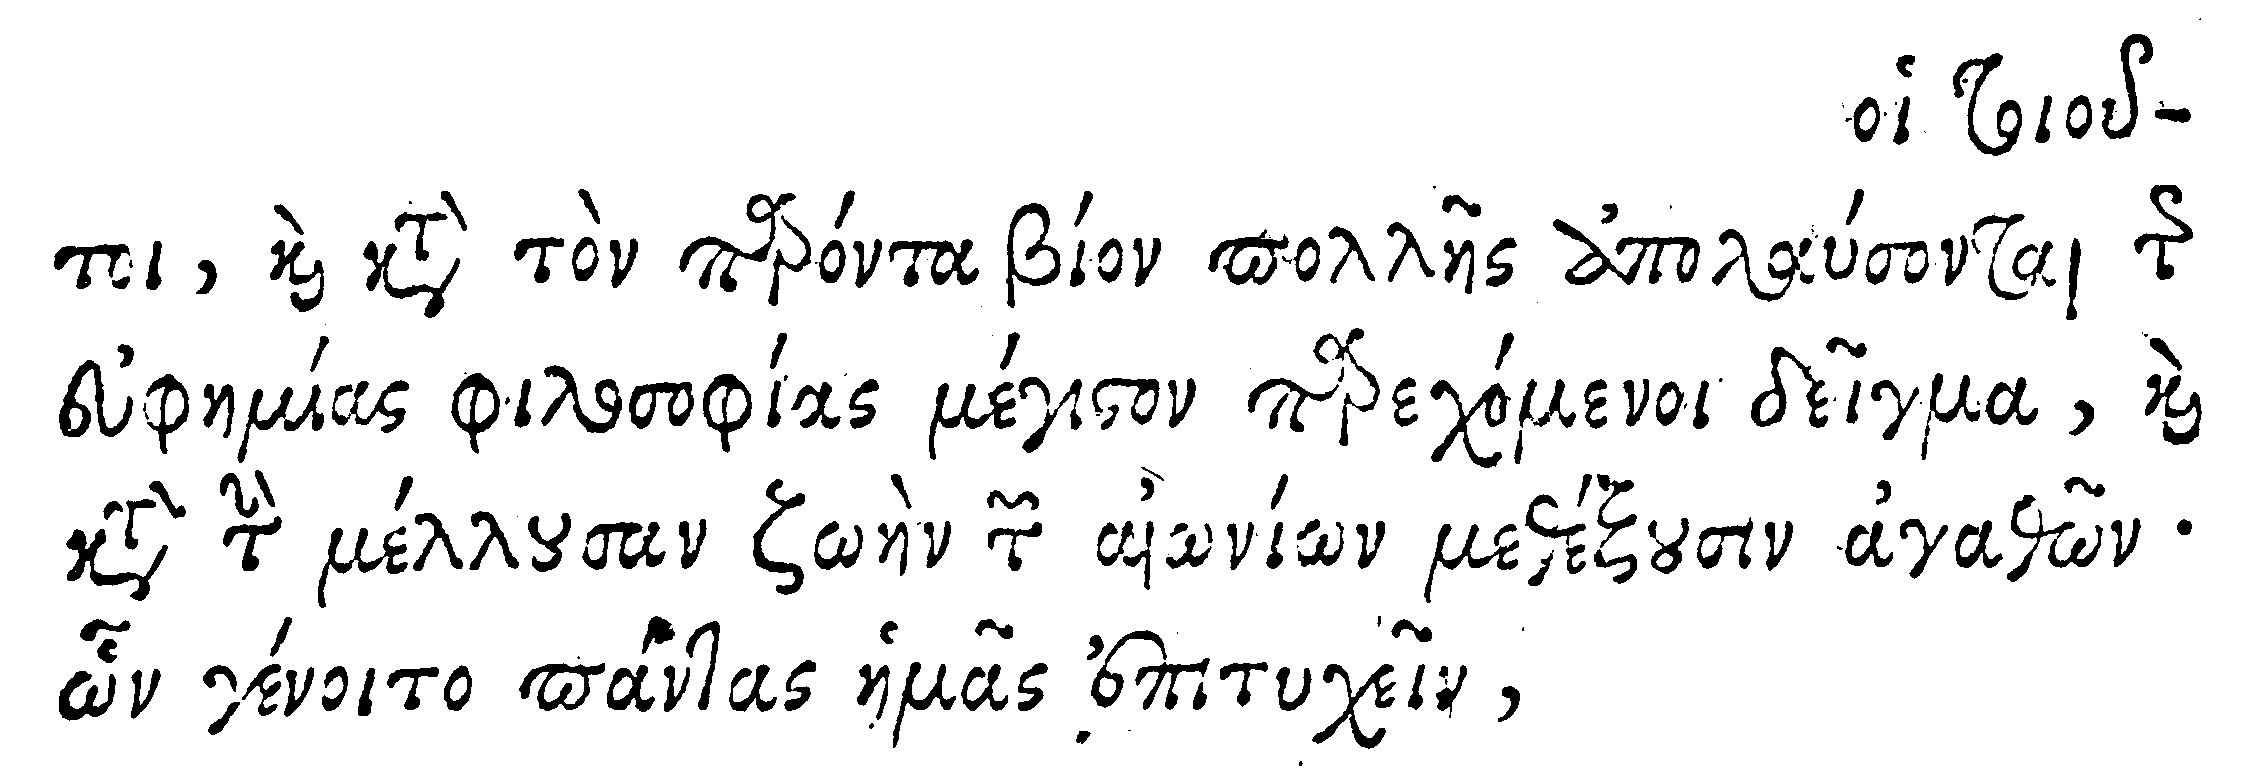 οἱ τοιοῦ-
τοι, καὶ κατὰ τὸν παρόντα βίον πολλῆς ἀπολαύσονται τῆς
εὐφημίας φιλοσοφίας μέγιστον παρεχόμενοι δεῖγμα, καὶ
κατὰ τὴν μέλλουσαν ζωὴν τῶν αἰωνίων μεθέξουσιν ἀγαθῶν·
ὧν γένοιτο πάντας ἡμᾶς ἐπιτυχεῖν,